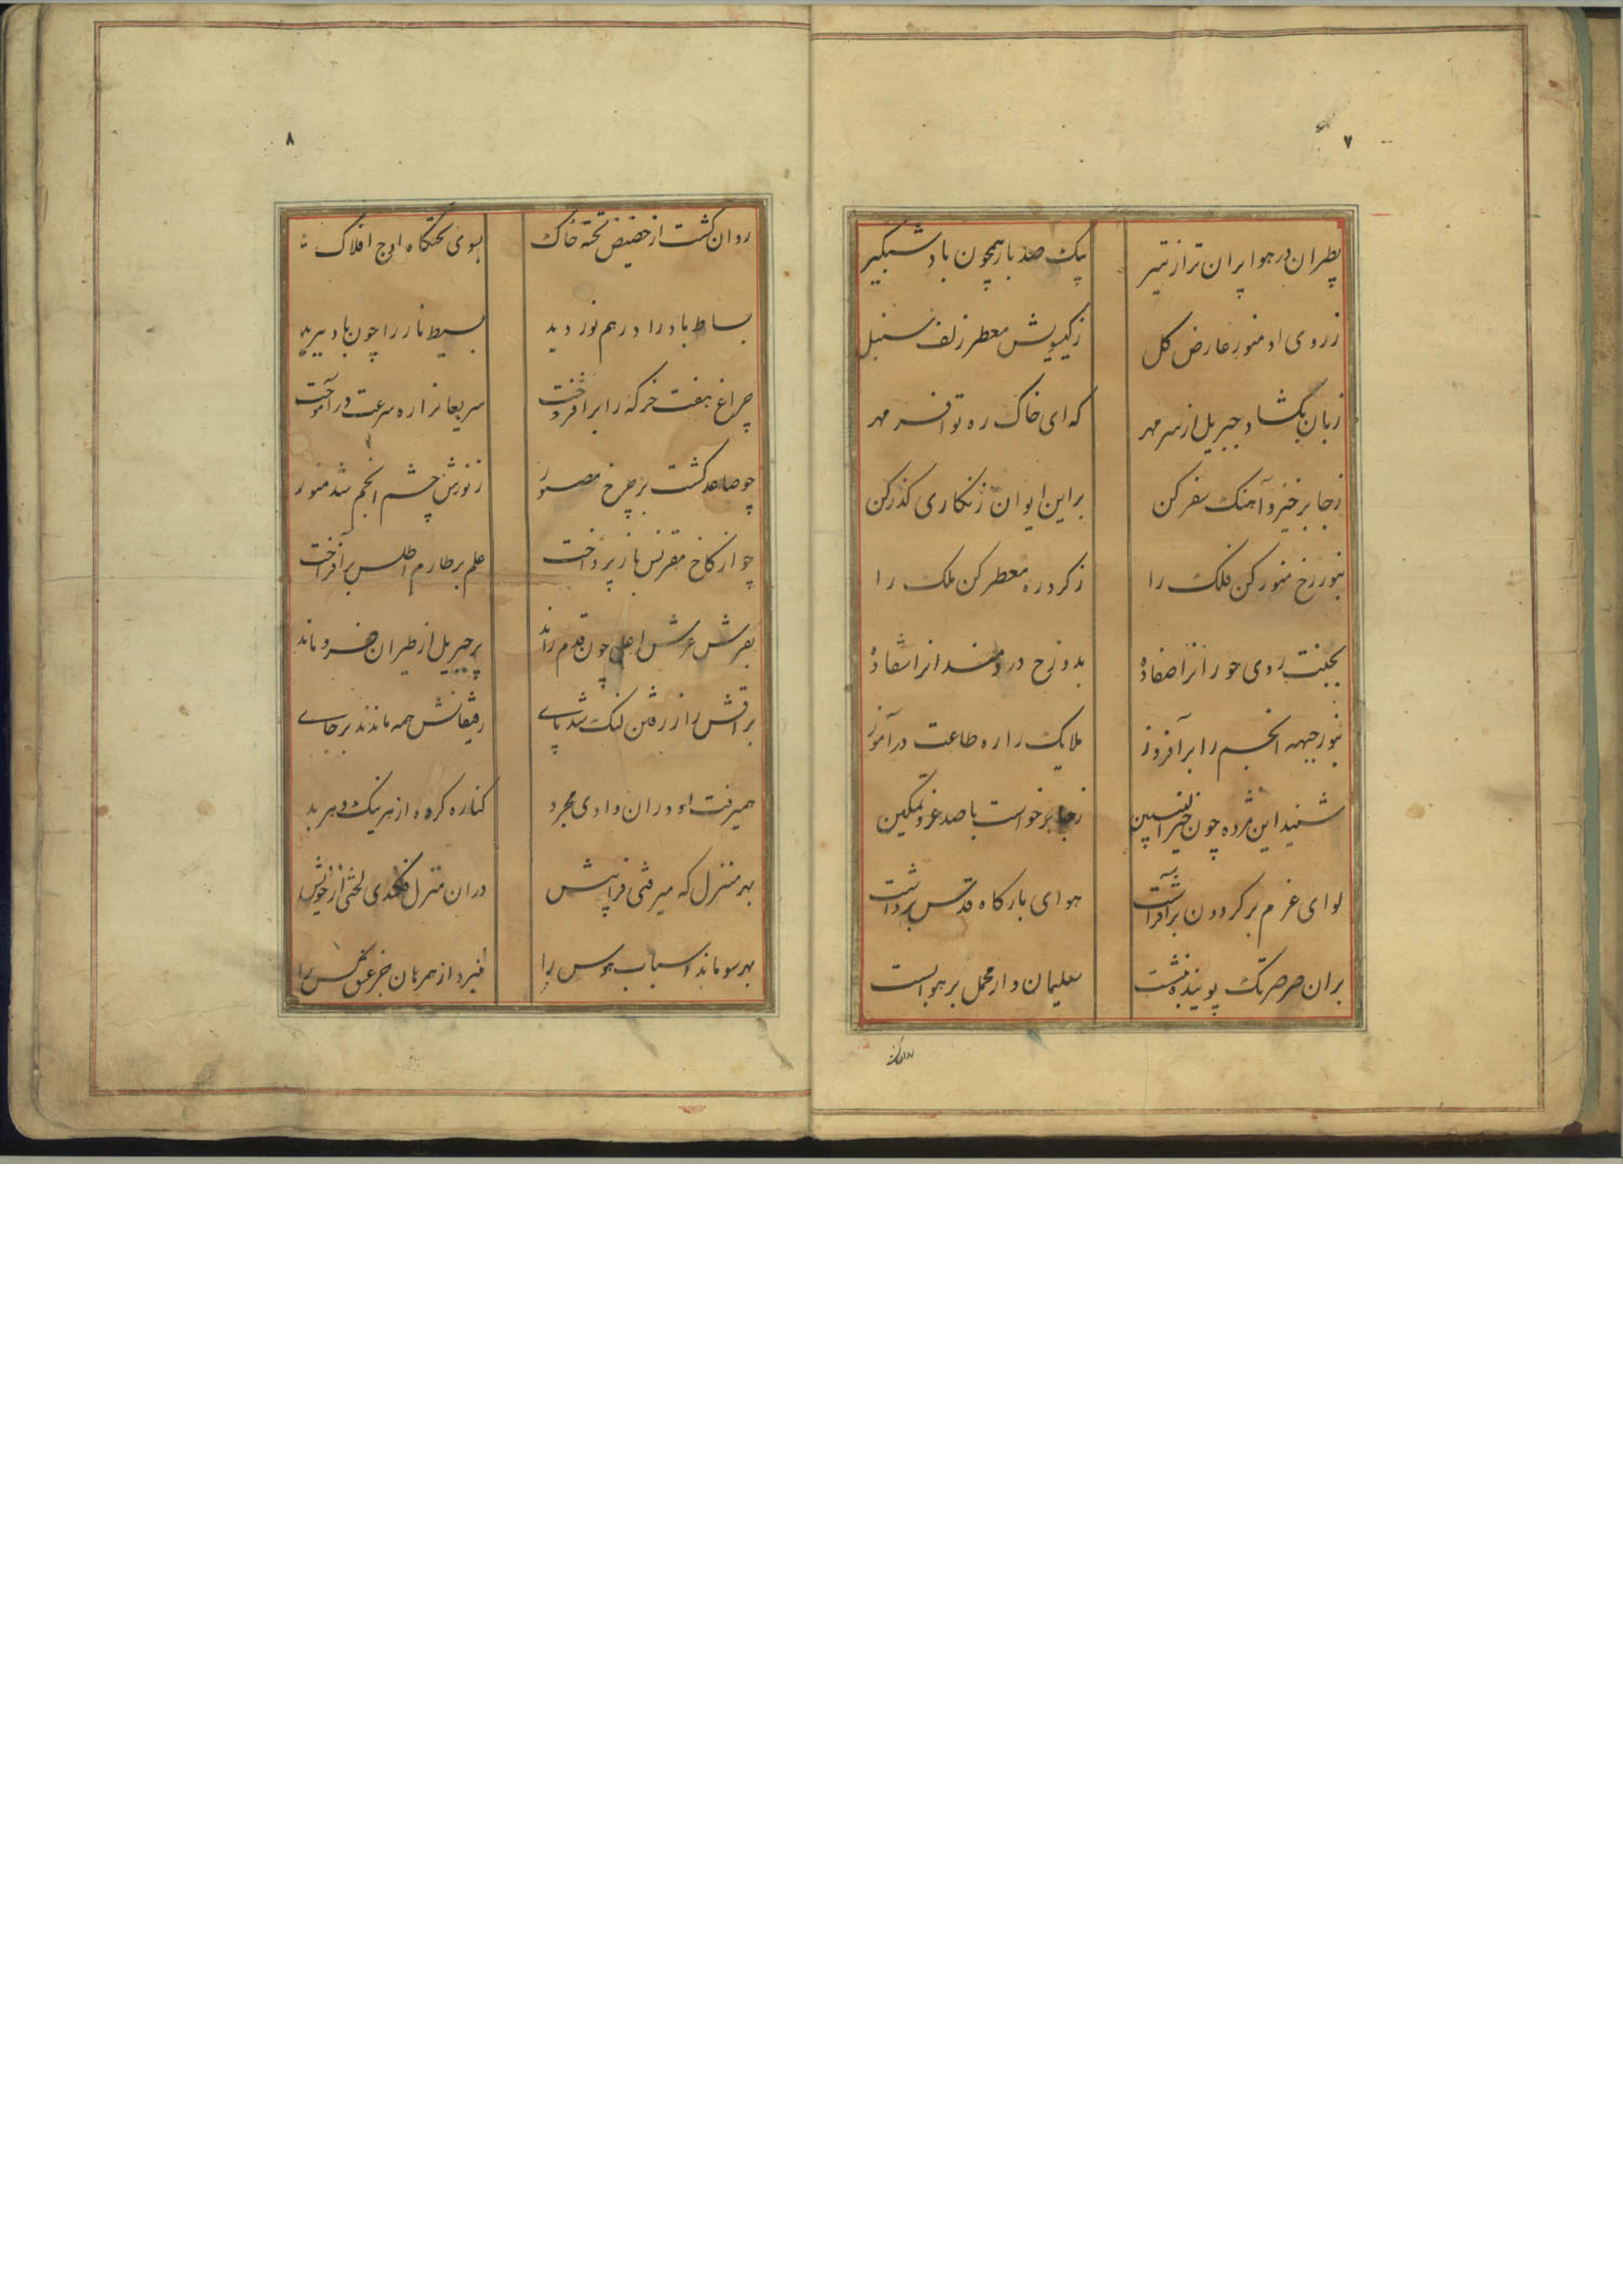 ۷
بطیران در هوا پران تر از تیر بیک صد بار همچون باد شبکیر
ز روی او منور عارض کل ز کیسویش معطر زلف سنبل
زبان بکشاد جبریل از سر مهر که ای خاک ره تو افسر مهر
ز جا برخیز و آهنک سفر کن بر این ایوان زنکاری کذر کن
بنور رخ منور کن فلک را ز کرد ره معطر کن ملک را
بجنت روی حورانرا صفا ده بدوزخ دردمندانرا شفا ده
بنور جبهه انجم را برافروز ملایک را ره طاعت درآموز
شنید این مژده چون خیر النبیین ز جا برخواست با صد عز و تمکین
لوای عزم بر کردون برافراشت هوای بارکاه قدس برداشت
بران صرصر تک پوینده بنشست سلیمان وار محمل بر هوا بست
روان کشت
۸
روان کشت از حضیض تخته خاک بسوی تختکاه اوج افلاک
بساط باد را در هم نوردید بسیط نار را چون باد ببرید
چراغ هفت خرکه را برافروخت سریعانرا ره سرعت درآموخت
چو صاعد کشت بر چرخ مصور ز نورش چشم انجم شد منور
چو از کاخ مقرنس باز پرداخت علم بر طارم اطلس برافراخت
بفرش عرش اعلی چون قدم راند پر جبریل از طیران فرو ماند
براقش را ز رفتن لنک شد پای رفیقانش همه ماندند بر جای
همیرفت او دران وادی مجرد کناره کرده از هر نیک و هر بد
بهر منزل که میرفتی فرا پیش دران منزل فکندی لختی از خویش
بهر سو ماند اسباب هوس را نبرد از همرهان جز عشق کس را